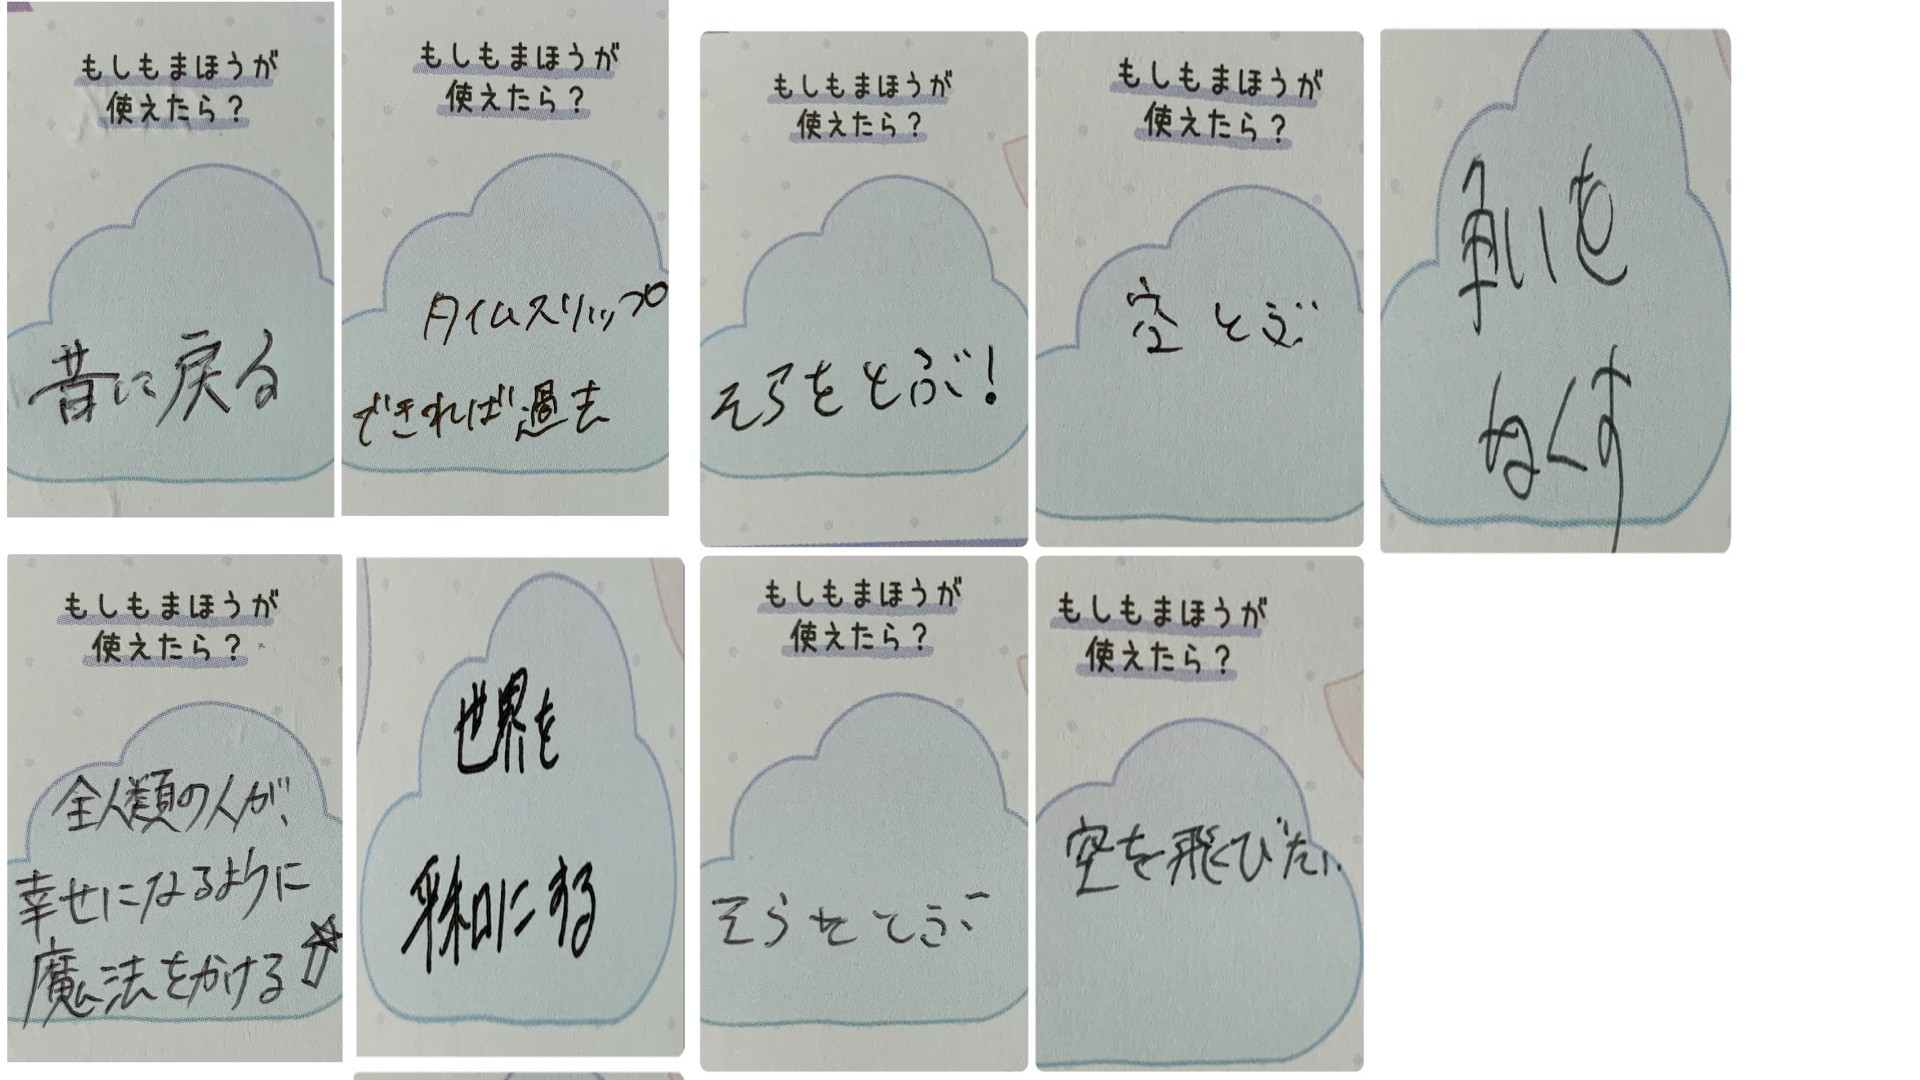 もしもまほうが
使えたら?
昔に戻る
もしもまほうが
使えたら?
タイムスリップ
できれば過去
もしもまほうが
使えたら?
そらをとぶ!
もしもまほうが
使えたら?
空とぶ
争いを
なくす
もしもまほうが
使えたら?
全人類の人が、
幸せになるように
魔法をかける
世界を
平和にする
もしもまほうが
使えたら?
そらをとぶ
もしもまほうが
使えたら?
空を飛びたい